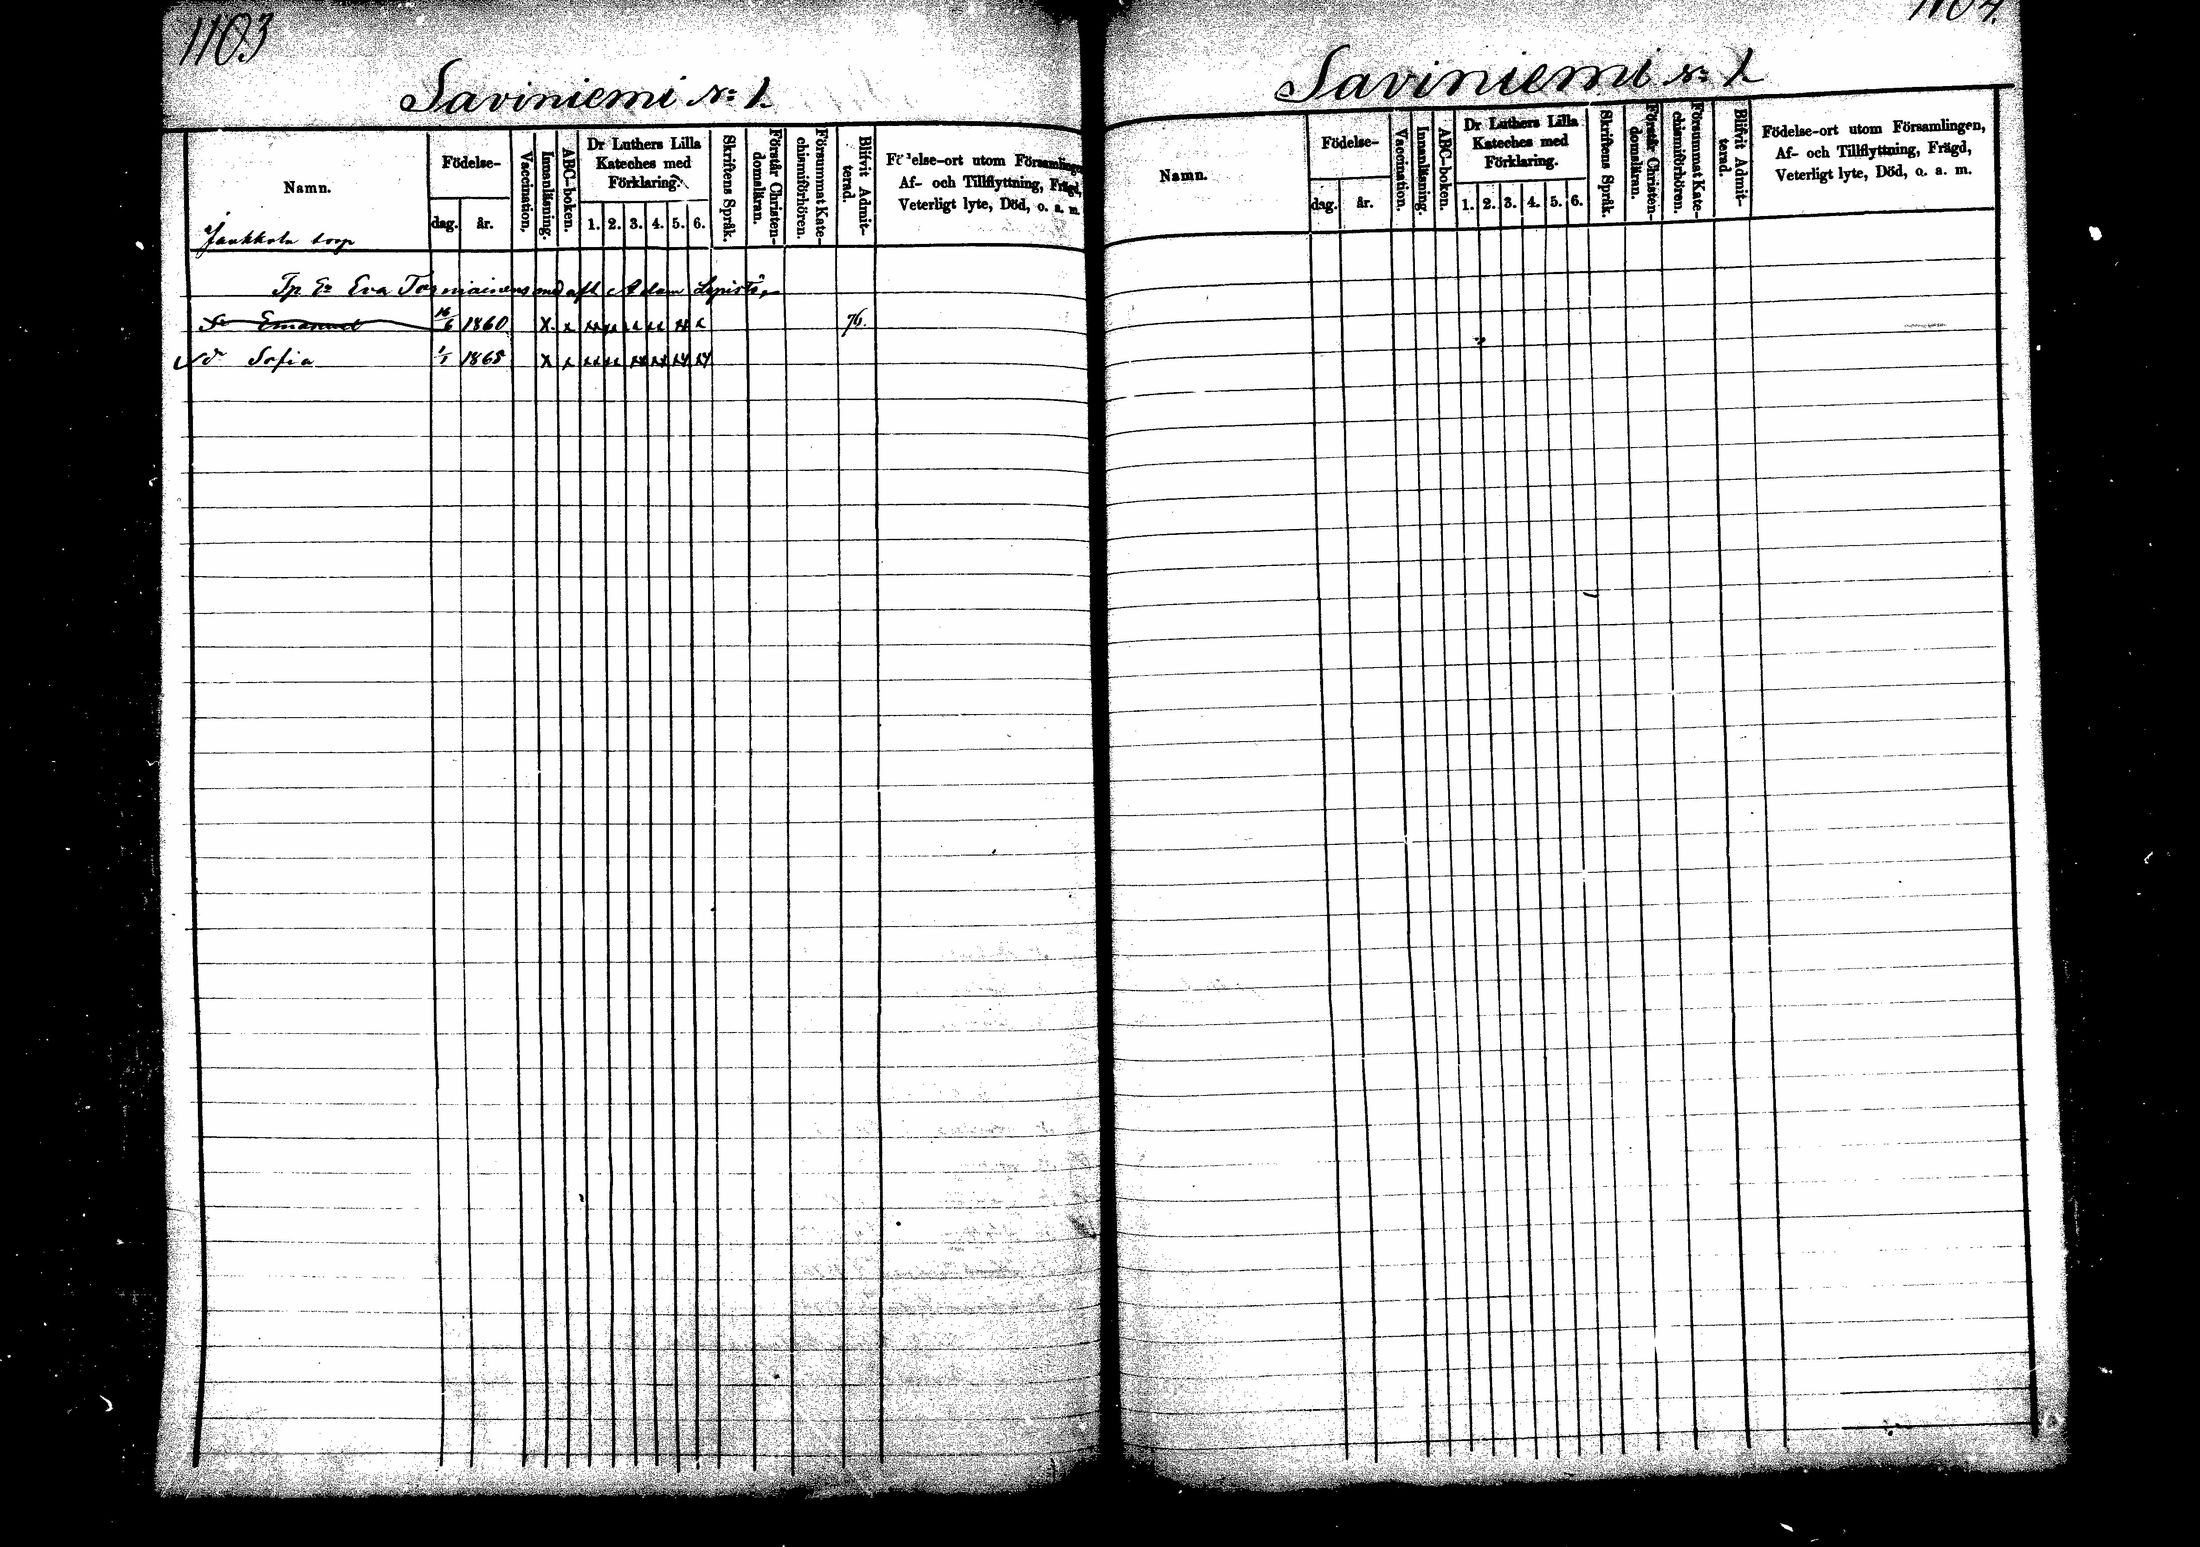 1103
Saviniemi No 1.
Namn.
Födelse-
dag. år.
Vaccination.
Innanläsning.
ABC-boken.
Dr Luthers Lilla
Kateches med
Förklaring.
1. 2. 3. 4. 5. 6.
Skriftens Språk.
Förstår Christen-
domsläran.
Försummat Kate-
chismiförhören.
Blifvit Admit-
terad.
Födelse-ort utom Församlingen,
Af- och Tillflyttning, Frägd,
Veterligt lyte, Död, o. a. m.
Jaakkola torp
Tp Ea Eva Torniainens med aflt Adam Lepistö,
Sr Emanuel 16/6 1860 x x xx xx xx xx xx x 76.
dr Sofia 1/1 1865 x x xx xx xx xx xx xx
1104.
Saviniemi No 1
Namn.
Födelse-
dag. år.
Vaccination.
Innanläsning.
ABC-boken.
Dr Luthers Lilla
Kateches med
Förklaring.
1. 2. 3. 4. 5. 6.
Skriftens Språk.
Förstår Christen-
domsläran.
Försummat Kate-
chismiförhören.
Blifvit Admit-
terad.
Födelse-ort utom Församlingen,
Af- och Tillflyttning, Frägd,
Veterligt lyte, Död, o. a. m.